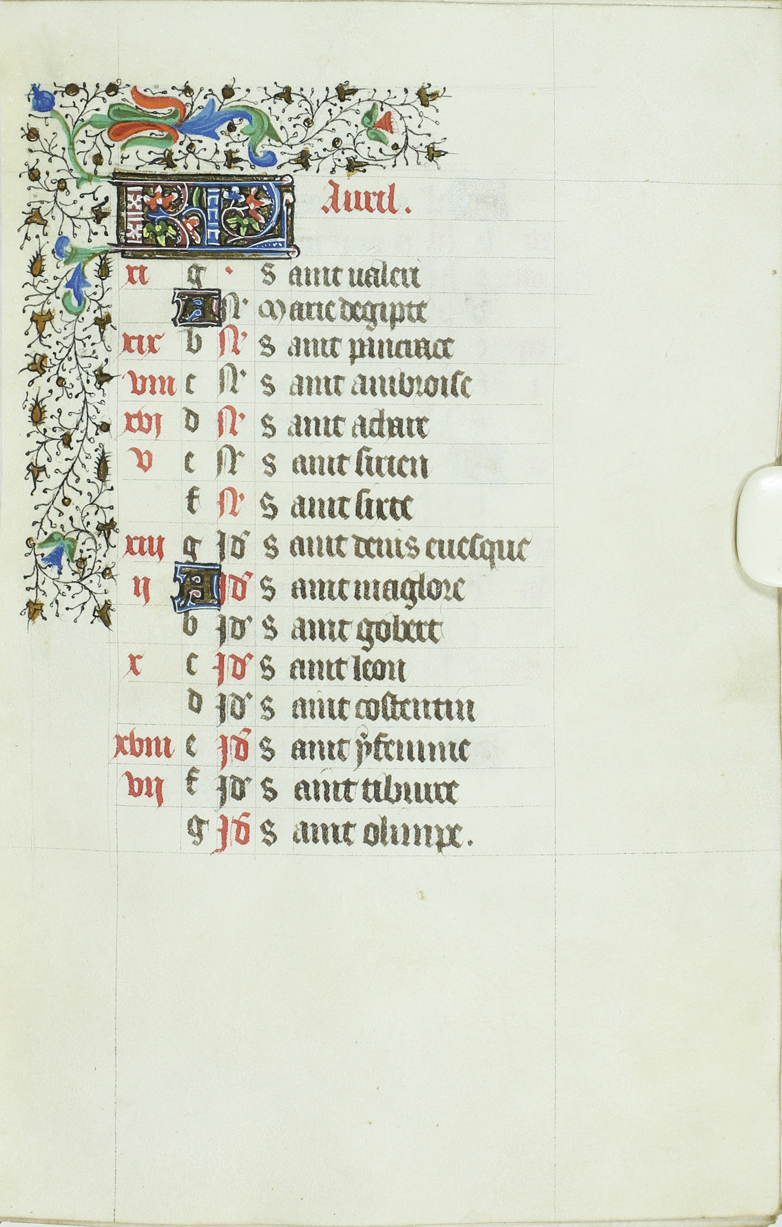 KL Auril.
xi g · Saint ualeri
A N' Marie degipte
xix b N' Saint pancrace
viii c N' Saint ambroise
xvj d N' Saint achare
v e N' Saint sirien
f N' Saint sixte
xiij g Jd' Saint denis euesque
ij A Jd' Saint maglore
b Jd' Saint gobert
x c Jd' Saint leon
d Jd' Saint costentin
xviii e Jd' Saint
vij f Jd' Saint tiburce
g Jd' Saint olimpe.